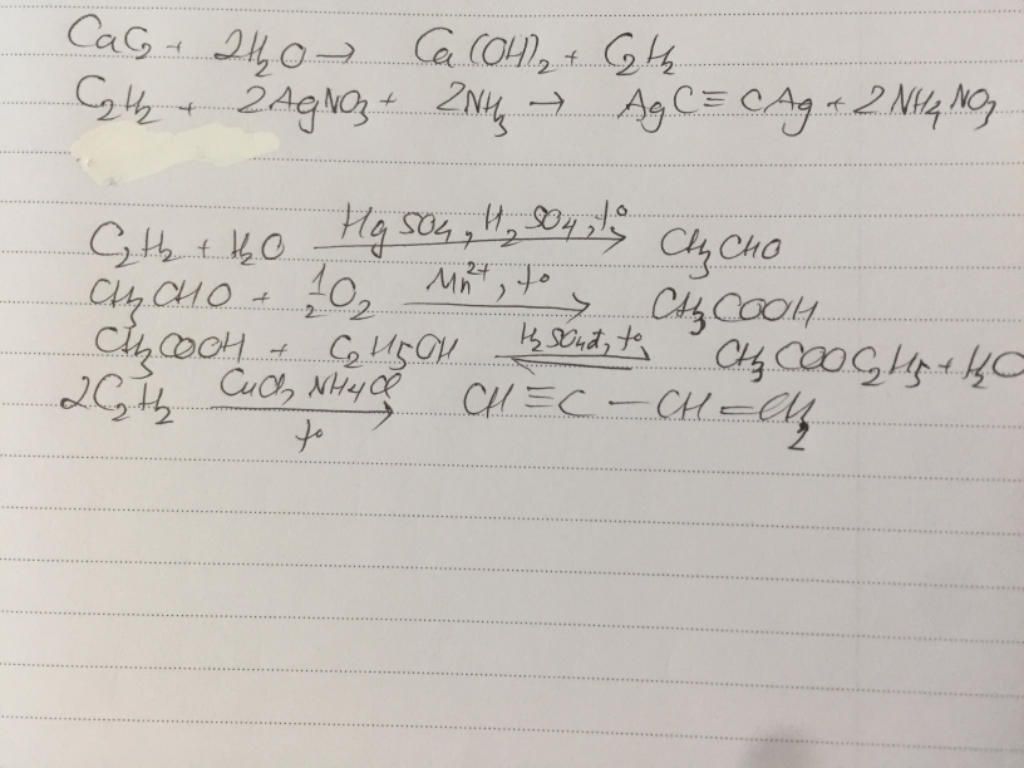 CaC₂ + 2H₂O → Ca(OH)₂ + C₂H₂
C₂H₂ + 2AgNO₃ + 2NH₃ → AgC≡CAg + 2NH₄NO₃
C₂H₂ + H₂O —HgSO₄, H₂SO₄, t°→ CH₃CHO
CH₃CHO + 1/2O₂ —Mn²⁺, t°→ CH₃COOH
CH₃COOH + C₂H₅OH ⇌ H₂SO₄đ, t° CH₃COOC₂H₅ + H₂O
2C₂H₂ —CuCl, NH₄Cl, t°→ CH≡C—CH=CH₂